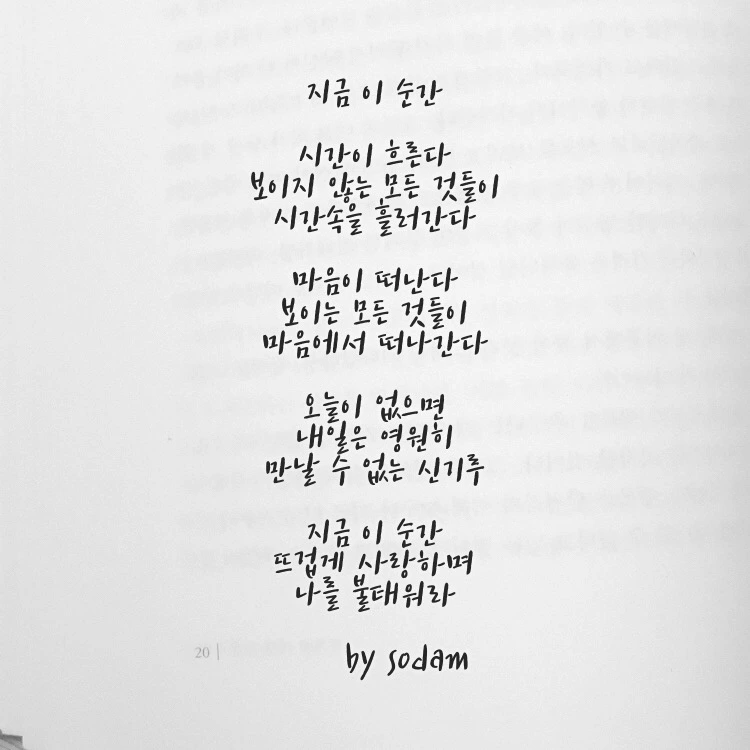 지금 이 순간
시간이 흐른다
보이지 않는 모든 것들이
시간속을 흘러간다
마음이 떠난다
보이는 모든 것들이
마음에서 떠나간다
오늘이 없으면
내일은 영원히
만날 수 없는 신기루
지금 이 순간
뜨겁게 사랑하며
나를 불태워라
20 |
by sodam